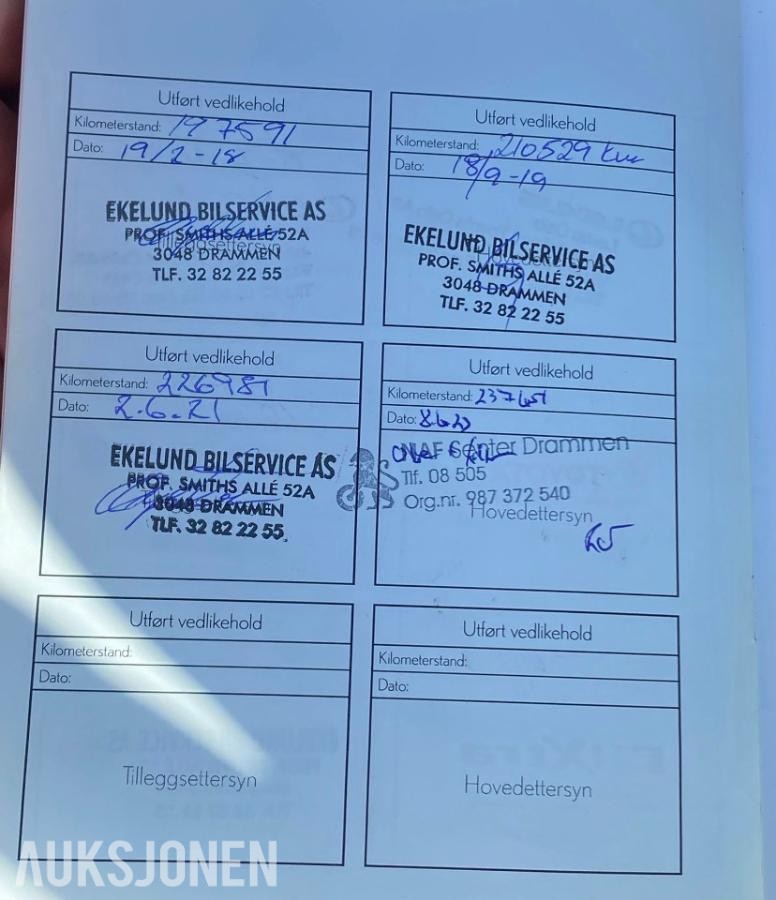 Utført vedlikehold
Kilometerstand: 197591
Dato: 19/2-18
EKELUND BILSERVICE AS
PROF. SMITHS ALLÉ 52A
Tilleggsettersyn
3048 DRAMMEN
TLF. 32 82 22 55
Utført vedlikehold
Kilometerstand: 210529 km
Dato: 18/9-19
EKELUND BILSERVICE AS
Hovedettersyn
PROF. SMITHS ALLÉ 52A
3048 DRAMMEN
TLF. 32 82 22 55
Utført vedlikehold
Kilometerstand: 226981
Dato: 2.6.21
EKELUND BILSERVICE AS
PROF. SMITHS ALLÉ 52A
3048 DRAMMEN
TLF. 32 82 22 55
Utført vedlikehold
Kilometerstand:
Dato:
NAF Senter Drammen
Tlf. 08 505
Org.nr. 987 372 540
Hovedettersyn
Utført vedlikehold
Kilometerstand:
Dato:
Tilleggsettersyn
Utført vedlikehold
Kilometerstand:
Dato:
Hovedettersyn
AUKSJONEN